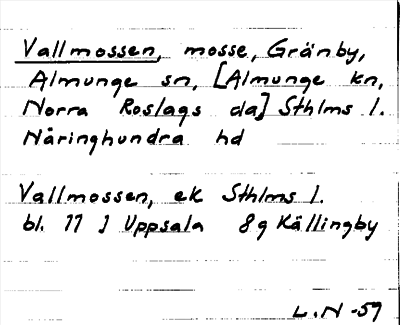 Vallmossen, mosse, Gränby,
Almunge sn, [Almunge kn,
Norra Roslags da] Sthlms l.
Närdinghundra hd
Vallmossen, ek Sthlms l.
bl. 11 J Uppsala 8g Källingby
L.N -59